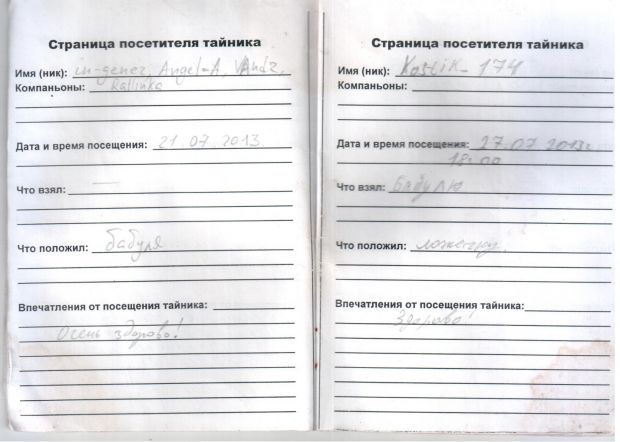 Страница посетителя тайника
Имя (ник): in-gener, Angel-A, VAndr,
Компаньоны: Kallinka
Дата и время посещения: 21.07.2013
Что взял: —
Что положил: бабуля
Впечатления от посещения тайника:
Очень здорово!
Страница посетителя тайника
Имя (ник): Kostik-174
Компаньоны:
Дата и время посещения: 27.07.2013г
18:00
Что взял: Бабулю
Что положил:
Впечатления от посещения тайника:
Здорово!